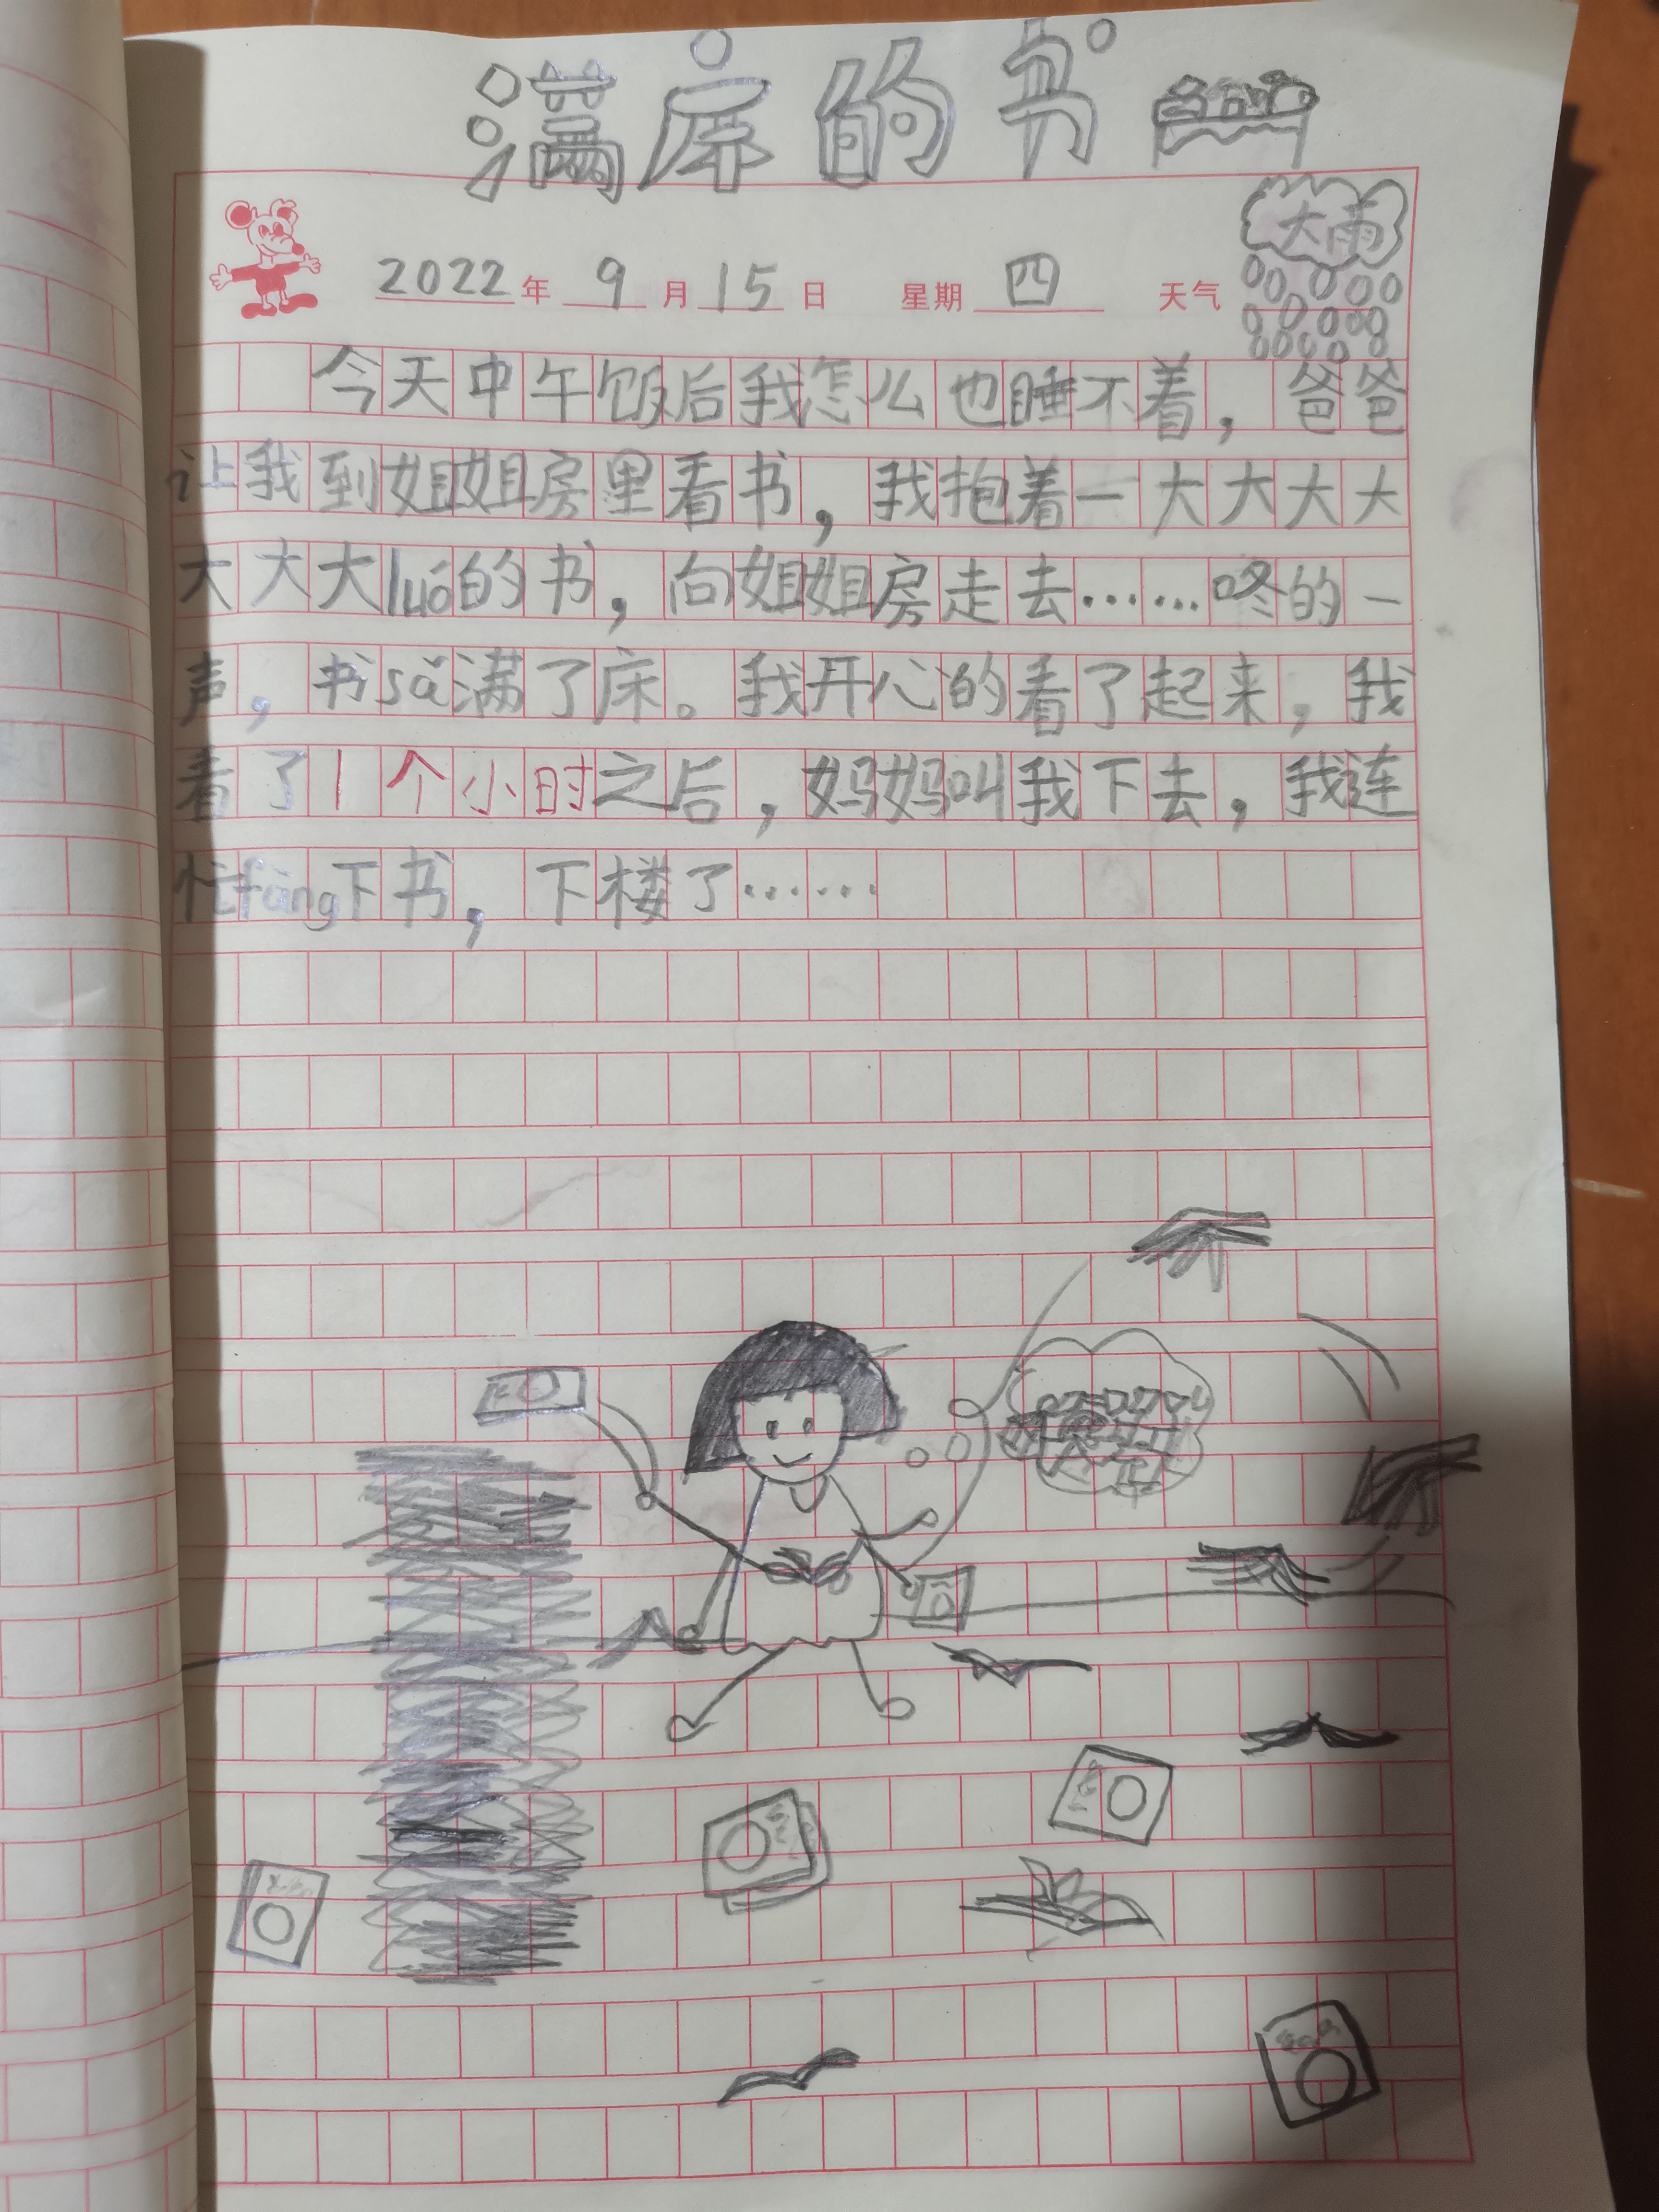 满床的书
2022年 9月15日 星期四 天气 大雨
今天中午饭后我怎么也睡不着，爸爸
让我到姐姐房里看书，我抱着一大大大大
大大大luó的书，向姐姐房走去……咚的一
声，书sǎ满了床。我开心的看了起来，我
看了1个小时之后，妈妈叫我下去，我连
忙fàng下书，下楼了……